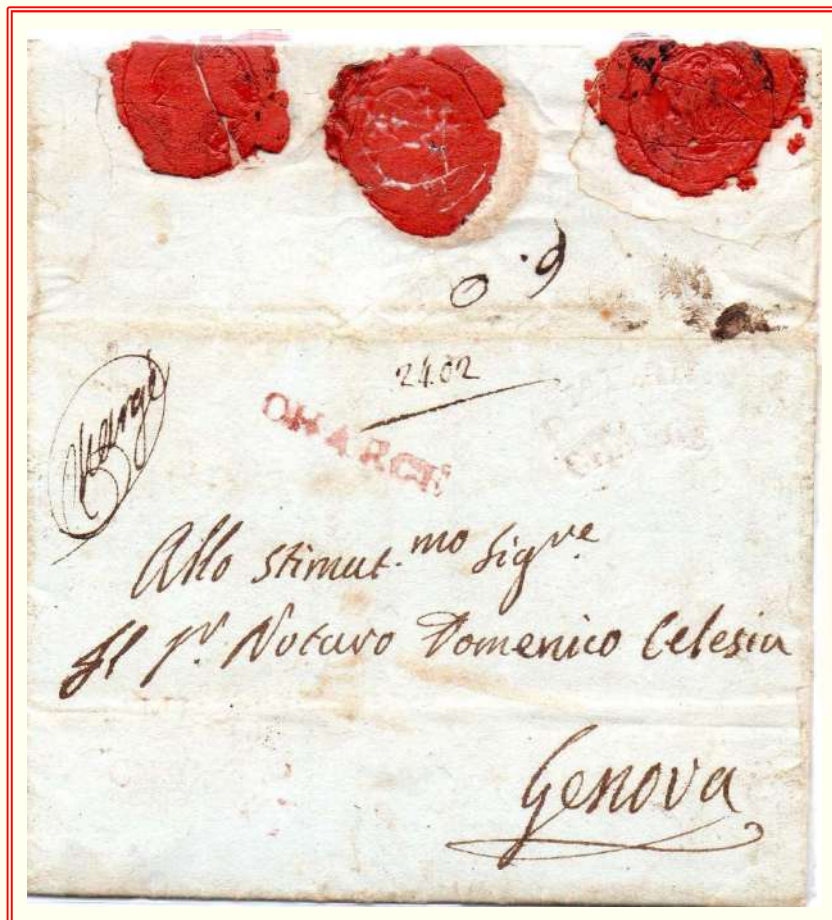 2402
CHARGE
Charge
Allo stimat.mo Sig.re
Il Sr. Notaro Domenico Celesia
Genova